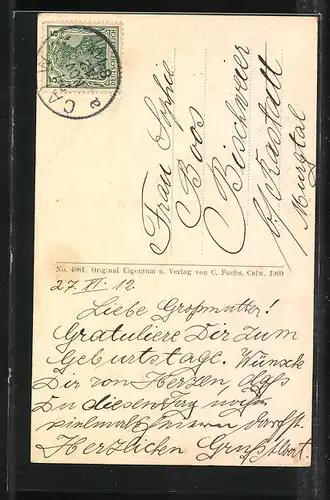 5 5
DEUTSCHES REICH
CALW
Frau Sophie
Boos
Bischweier
b/ Rastatt
Murgtal
No. 4081. Original Eigentum u. Verlag von C. Fuchs, Calw. 1909
27. XI. 12.
Liebe Großmutter!
Gratuliere Dir zum
Geburtstage. Wünsche
Dir von Herzen, daß
Du diesen Tag noch
vielmals feiern darfst.
Herzlichen Gruß Albert.